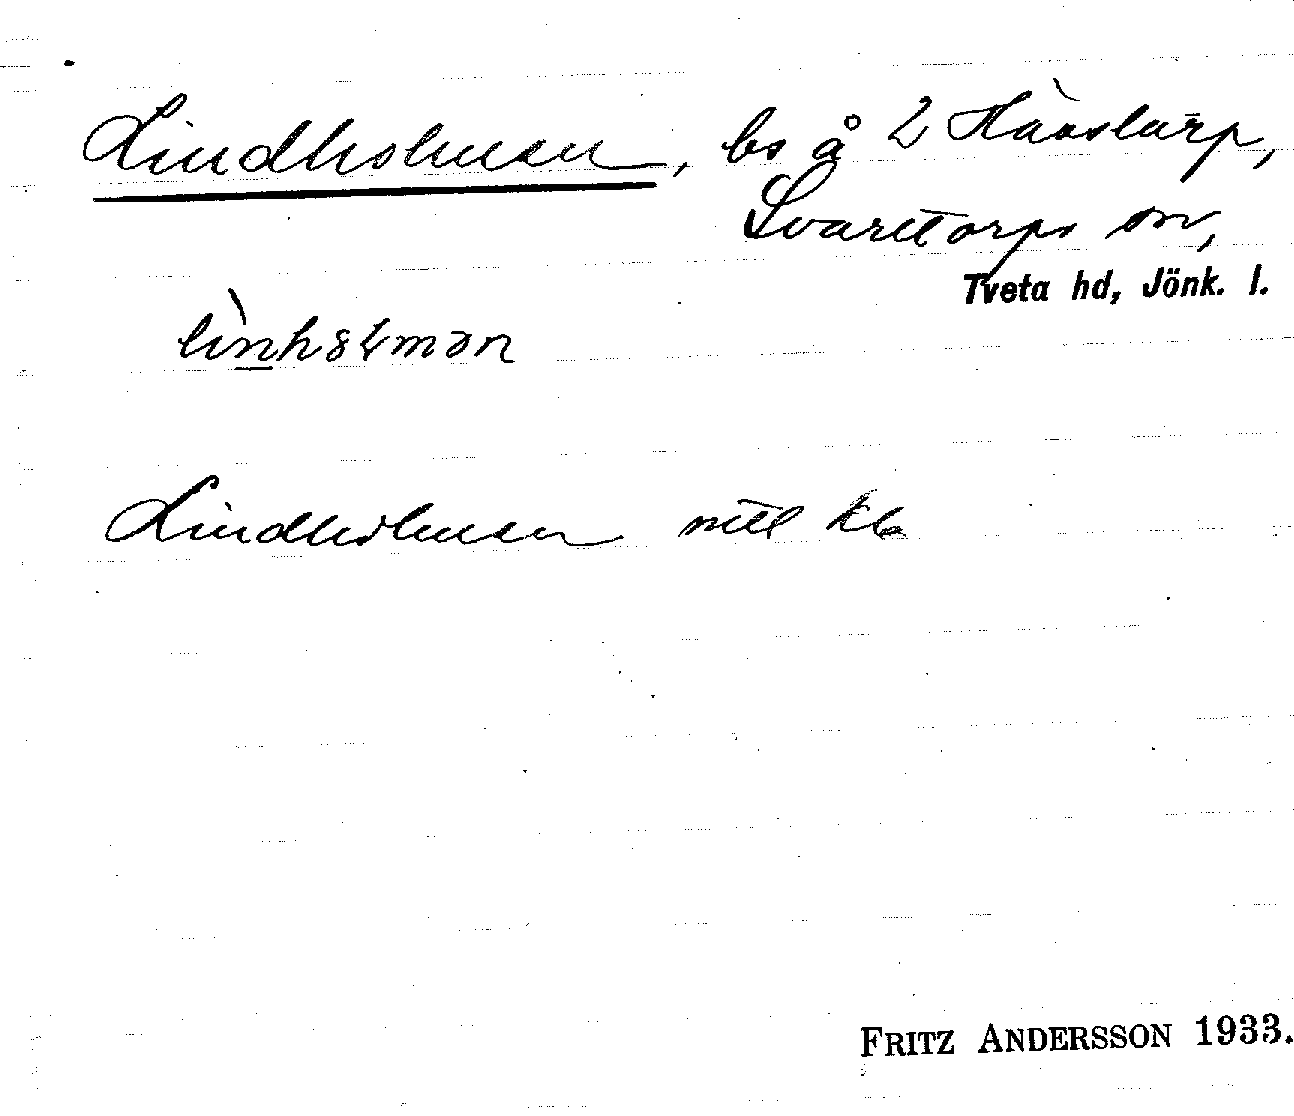 Lindholmen, bs å 2 Håastarp,
Svarttorps sn,
Tveta hd, Jönk. l.
Lindholmen mtl kb
FRITZ ANDERSSON 1933.